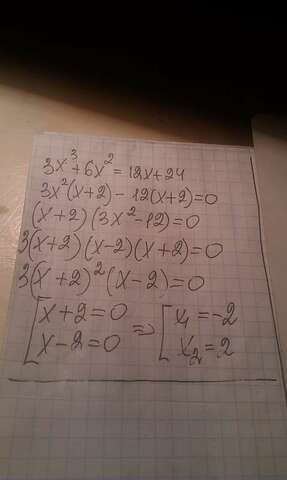 3x³+6x²=12x+24
3x²(x+2)-12(x+2)=0
(x+2)(3x²-12)=0
3(x+2)(x-2)(x+2)=0
3(x+2)²(x-2)=0
[x+2=0 => [x₁=-2
[x-2=0 [x₂=2